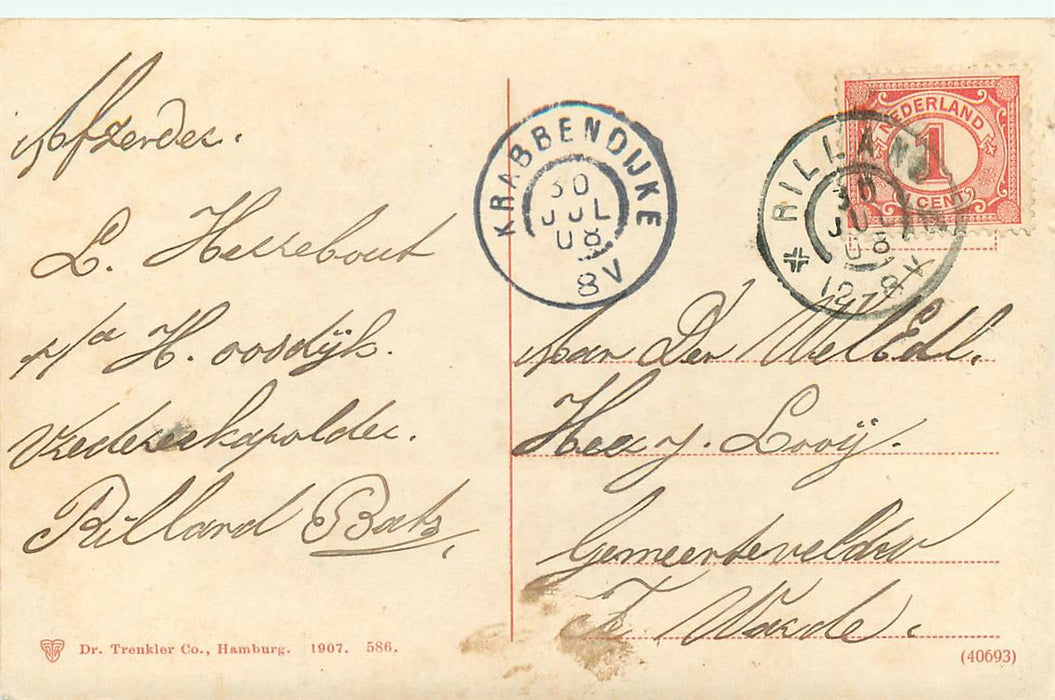 Afzender.
L. Herrebout
p/a H. oosdijk.
Rilland Batz,
KRABBENDIJKE
30
JUL
08
8V
NEDERLAND
1
CENT
RILLAN
30
JUL
08
12 8V
Aan Den WelEdl.
Heer J. Looij.
Gemeenteveldw
Te Waarde.
Dr. Trenkler Co., Hamburg. 1907. 586.
(40693)